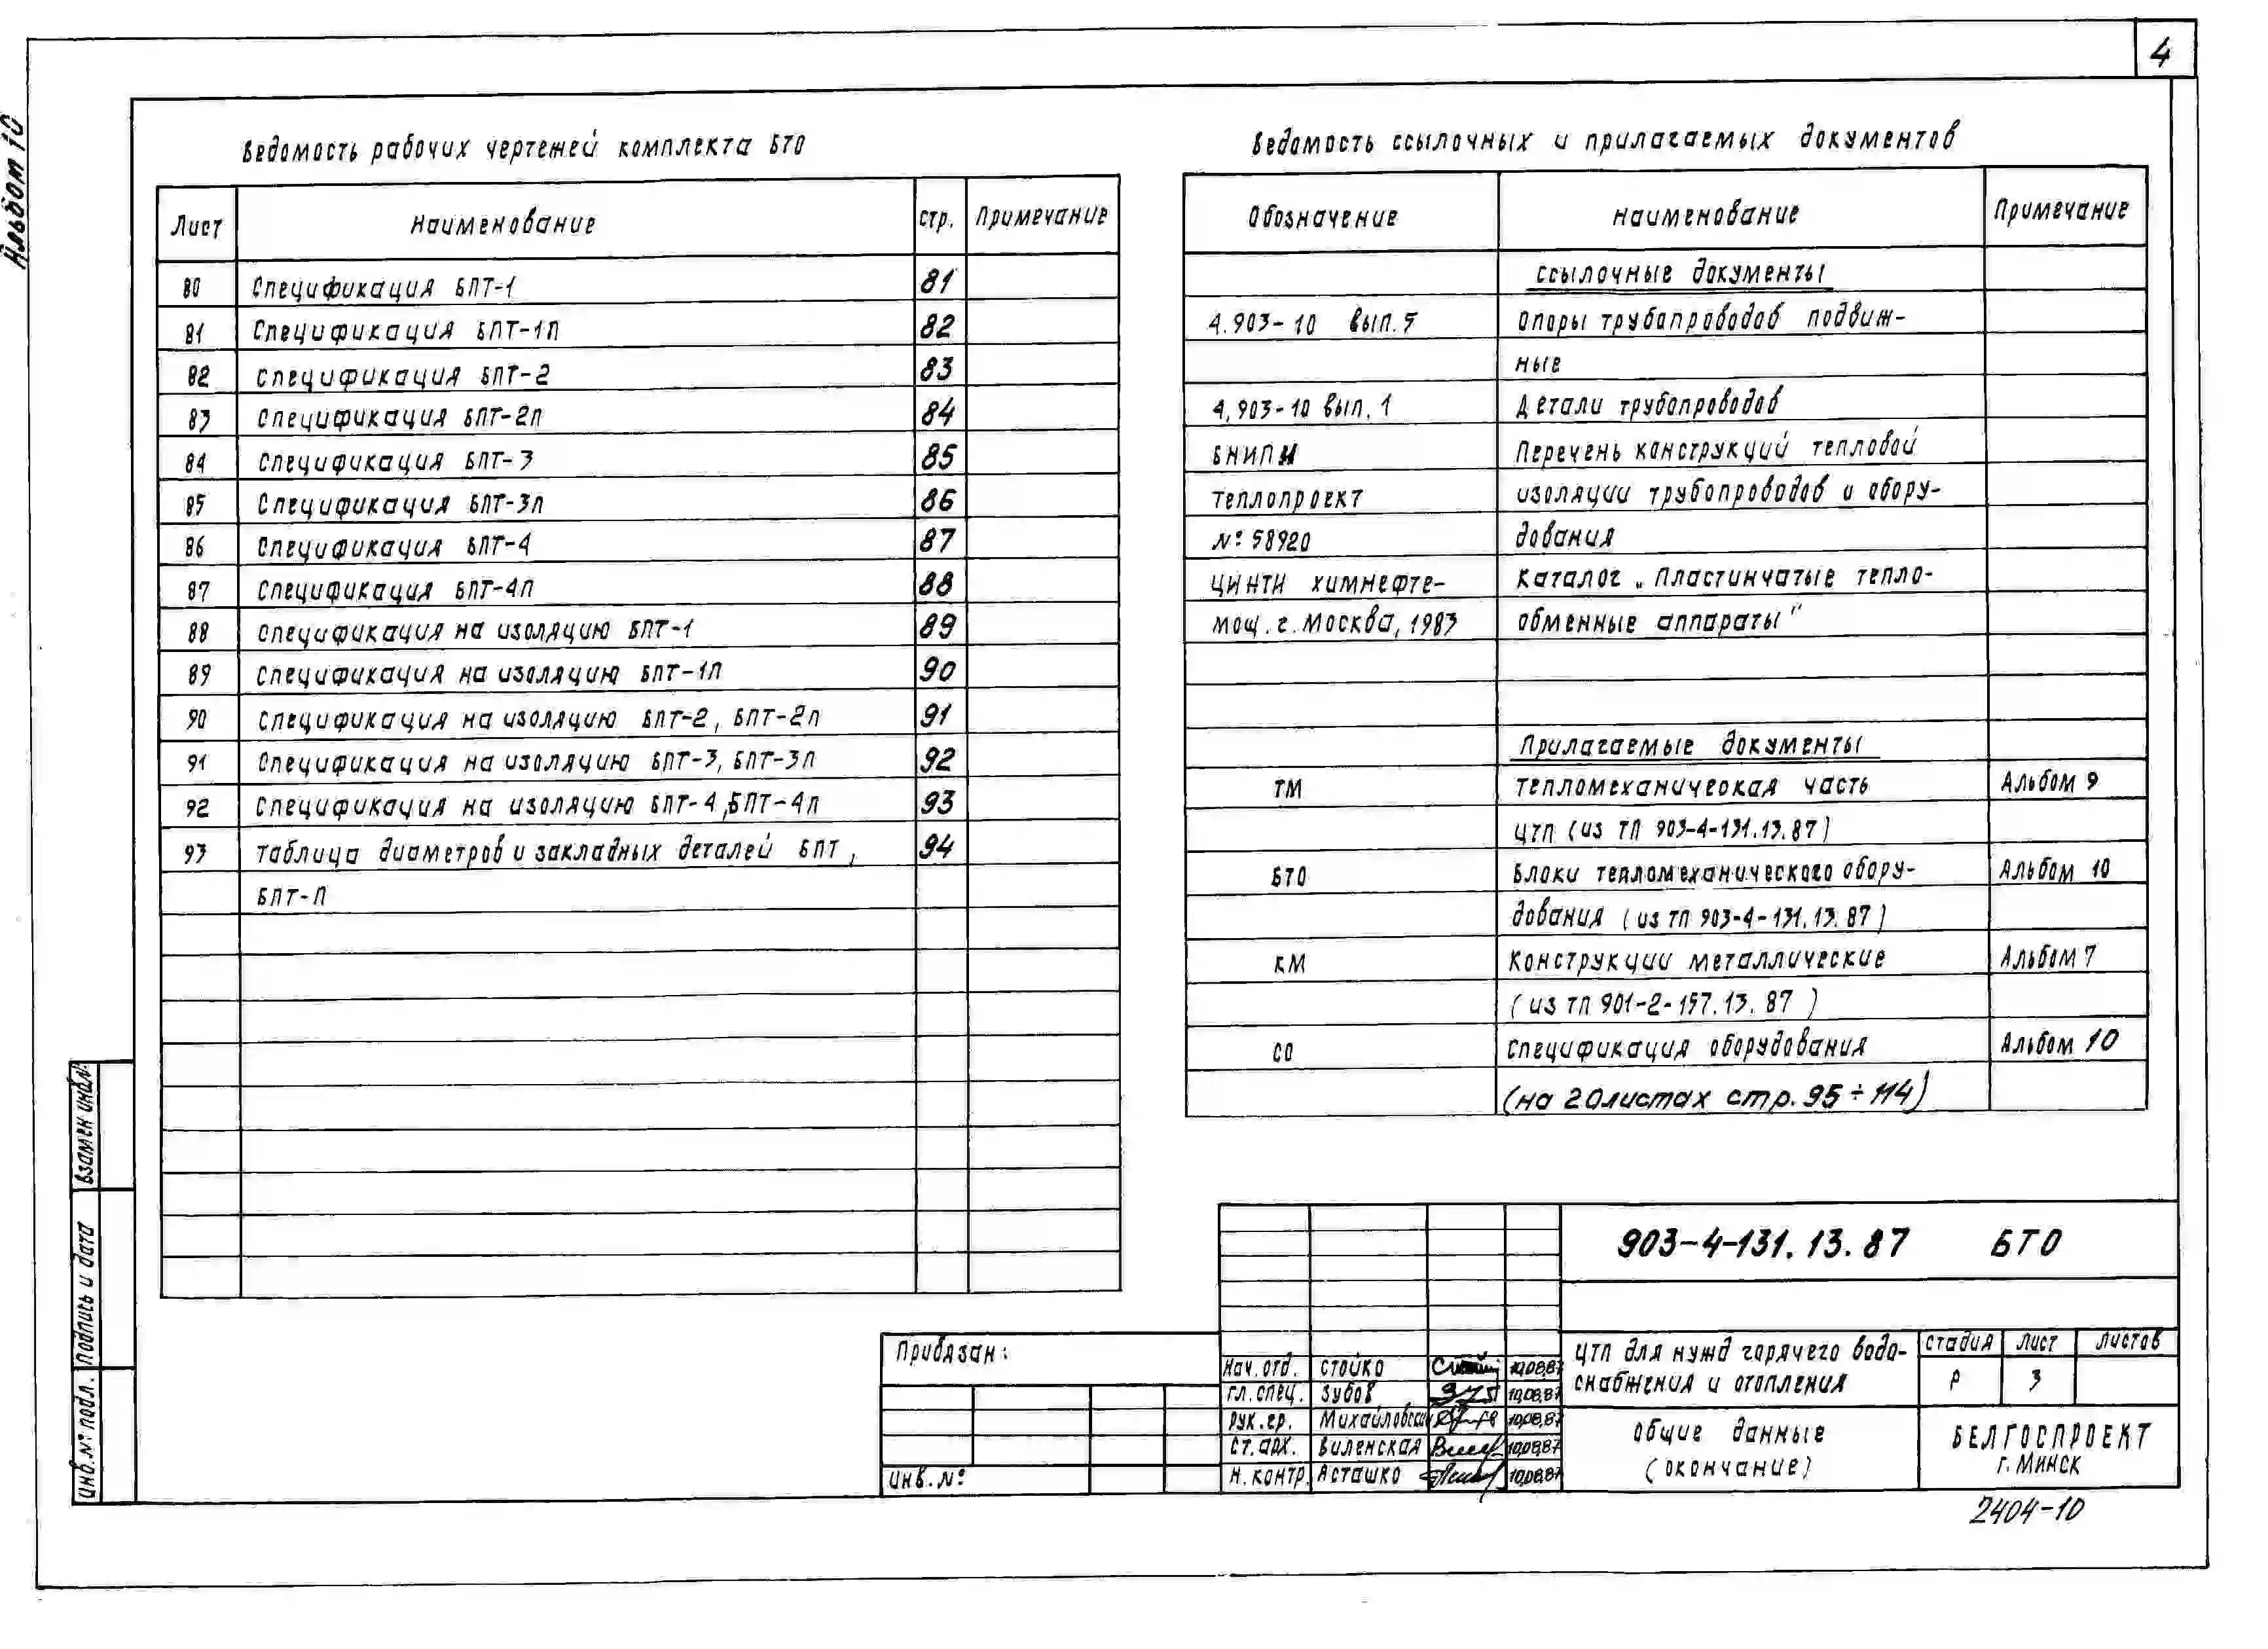 4
Альбом 10
Ведомость рабочих чертежей комплекта БТО
Лист Наименование стр. Примечание
80 Спецификация БПТ-1 81
81 Спецификация БПТ-1П 82
82 Спецификация БПТ-2 83
83 Спецификация БПТ-2П 84
84 Спецификация БПТ-3 85
85 Спецификация БПТ-3П 86
86 Спецификация БПТ-4 87
87 Спецификация БПТ-4П 88
88 Спецификация на изоляцию БПТ-1 89
89 Спецификация на изоляцию БПТ-1П 90
90 Спецификация на изоляцию БПТ-2, БПТ-2П 91
91 Спецификация на изоляцию БПТ-3, БПТ-3П 92
92 Спецификация на изоляцию БПТ-4, БПТ-4П 93
93 Таблица диаметров и закладных деталей БПТ, 94
БПТ-П
Ведомость ссылочных и прилагаемых документов
Обозначение Наименование Примечание
Ссылочные документы
4.903-10 вып.5 Опоры трубопроводов подвиж-
ные
4.903-10 вып.1 Детали трубопроводов
БНИПИ Перечень конструкций тепловой
теплопроект изоляции трубопроводов и обору-
№58920 дования
ЦИНТИ химнефте- Каталог „Пластинчатые тепло-
мощ. г. Москва, 1983 обменные аппараты"
Прилагаемые документы
ТМ Тепломеханическая часть Альбом 9
ЦТП (из ТП 903-4-131.13.87)
БТО Блоки тепломеханического обору- Альбом 10
дования (из ТП 903-4-131.13.87)
КМ Конструкции металлические Альбом 7
(из ТП 901-2-157.13.87)
СО Спецификация оборудования Альбом 10
(на 20листах стр. 95÷114)
Взамен инв.№
Подпись и дата
Инв.№ подл.
Привязан:
Инв.№
903-4-131.13.87 БТО
Нач.отд. Стойко 10.08.87
Гл.спец. Зубов 10.08.87
Рук.гр. Михайловская 10.08.87
Ст.арх. Виленская 10.08.87
Н.контр. Асташко 10.08.87
ЦТП для нужд горячего водо-
снабжения и отопления
стадия лист листов
Р 3
Общие данные
(окончание)
БЕЛГОСПРОЕКТ
г. Минск
2404-10